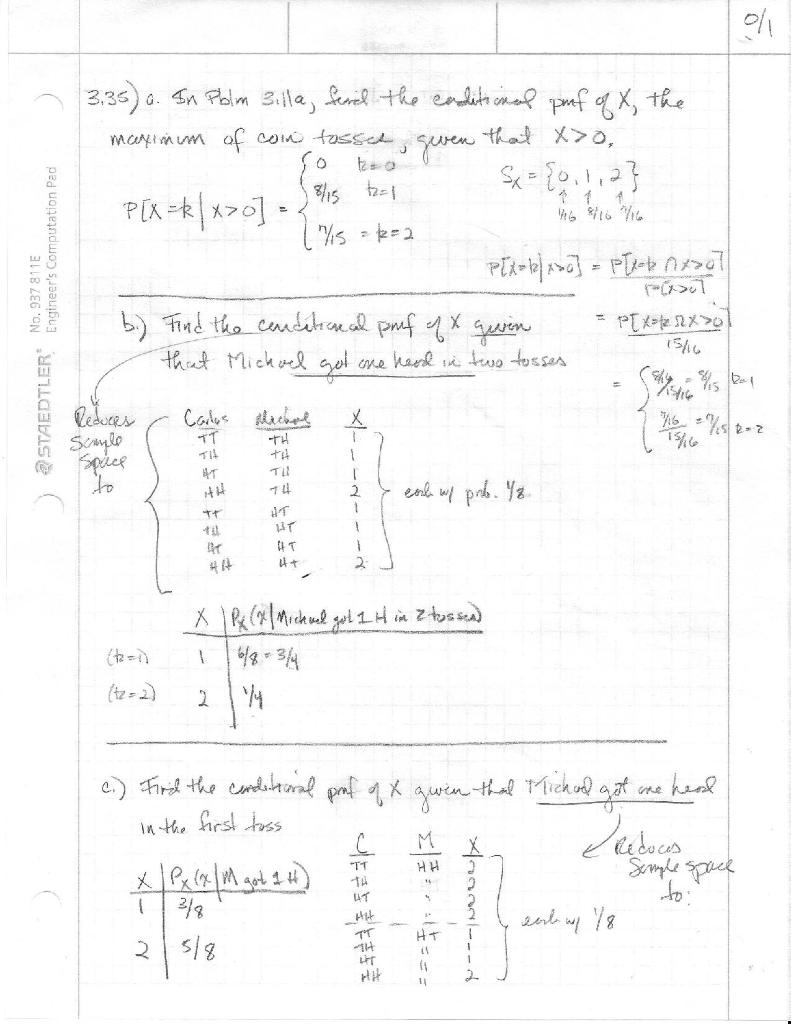 0/1
3.35) a. In Pblm 3.11a, find the conditional pmf of X, the
maximum of coin tosses, given that X>0.
P[X=k | X>0] = { 0 k=0
8/15 k=1
7/15 = k=2
Sx = {0, 1, 2}
↑ ↑ ↑
1/16 8/16 7/16
P[X=k|X>0] = P[X=k ∩ X>0]
P[X>0]
= P[X=k ∩ X>0]
15/16
= { 8/16 / 15/16 = 8/15 k=1
7/16 / 15/16 = 7/15 k=2
b.) Find the conditional pmf of X given
that Michael got one head in two tosses
Reduces
Sample
Space
to
Carlos Michael X
TT TH 1
TH TH 1
HT TH 1
HH TH 2
TT HT 1
TH HT 1
HT HT 1
HH HT 2
each w/ prob. 1/8
X Px(x|Michael got 1 H in 2 tosses)
(k=1) 1 6/8 = 3/4
(k=2) 2 1/4
c.) Find the conditional pmf of X given that Michael got one head
in the first toss
Reduces
Sample space
to:
C M X
TT HH 2
TH " 2
HT " 2
HH " 2
TT HT 1
TH " 1
HT " 1
HH " 2
each w/ 1/8
X Px(x|M got 1 H)
1 3/8
2 5/8
STAEDTLER® No. 937 811E
Engineer's Computation Pad